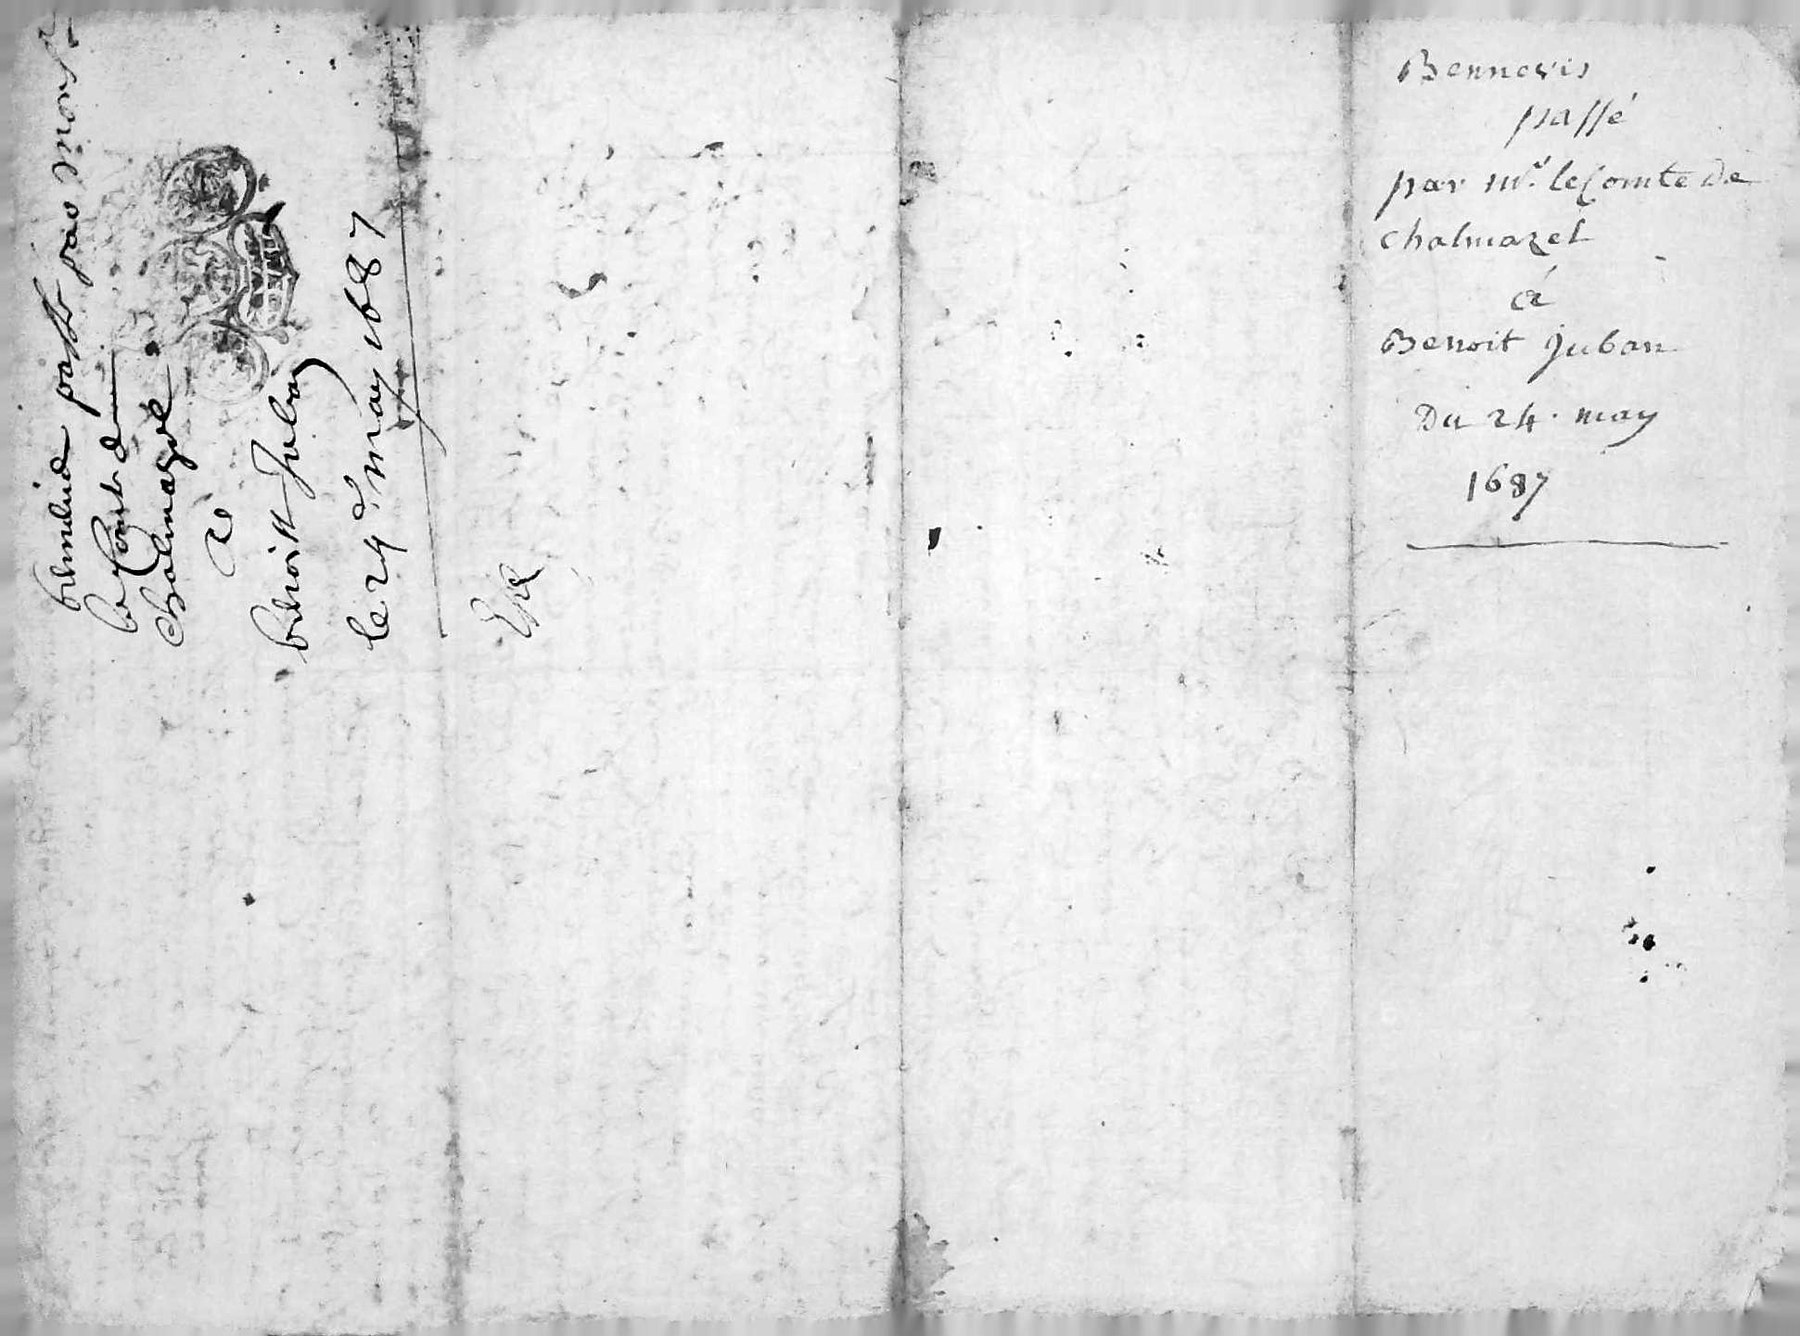 passé par Mons.r
le Comte de
Chalmazel
a
benoist Juban
le 24 may 1687
Bennevis
passé
par mr. le Comte de
chalmazel
á
Benoit Juban
Du 24. may
1687